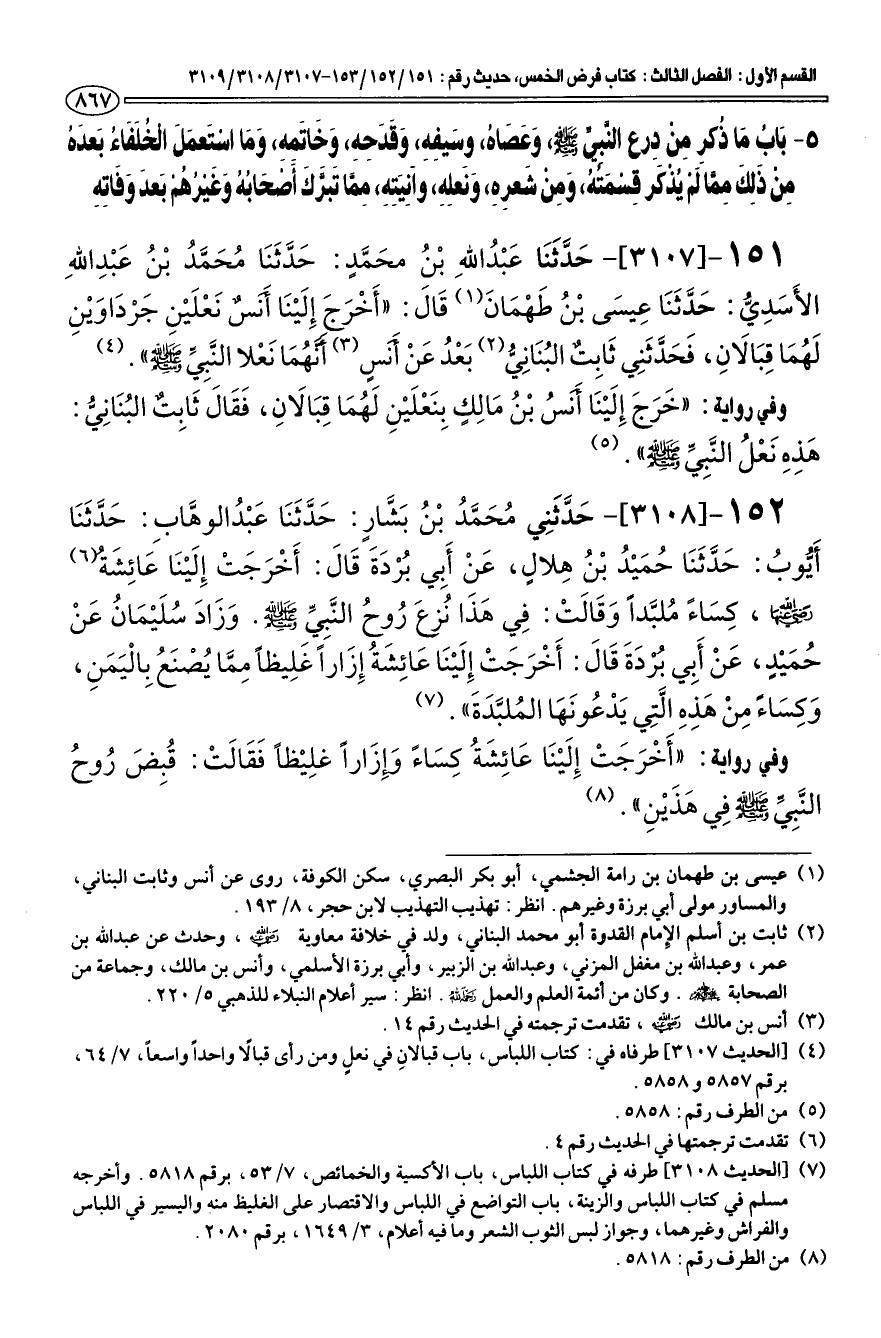 القسم الأول: الفصل الثالث: كتاب فرض الخمس، حديث رقم: ١٥١/ ١٥٢/ ١٥٣-٣١٠٧/ ٣١٠٨/ ٣١٠٩
٨٦٧
٥- بَابُ مَا ذُكر مِنْ دِرع النَّبِيِّ ﷺ، وَعَصَاهُ، وسَيفِهِ، وَقَدَحِهِ، وَخَاتمِهِ، وَمَا اسْتَعمَلَ الخُلَفَاءُ بَعدَهُ
مِنْ ذَلِكَ مِمَّا لَمْ يُذْكَر قِسْمَتُهُ، وَمِنْ شعرِهِ، وَنَعلِهِ، وآنِيَتِهِ، مِمَّا تَبَرَّكَ أصْحَابُهُ وَغَيْرُهُمْ بَعدَ وَفَاتِهِ
١٥١-[٣١٠٧]- حَدَّثَنَا عَبْدُاللهِ بْنُ محَمَّدٍ: حَدَّثَنَا مُحَمَّدُ بْنُ عَبْدِاللهِ
الأَسَدِيُّ: حَدَّثَنَا عِيسَى بْنُ طَهْمَانَ(١) قَالَ: «أَخْرَجَ إِلَيْنَا أَنَسٌ نَعْلَيْنِ جَرْدَاوَيْنِ
لَهُمَا قِبَالَانِ، فَحَدَّثَنِي ثَابِتٌ البُنَانِيُّ(٢) بَعْدُ عَنْ أَنَسٍ(٣) أَنَّهُمَا نَعْلا النَّبِيِّ ﷺ». (٤)
وفي رواية: «خَرَجَ إِلَيْنَا أَنَسُ بْنُ مَالِكٍ بِنَعْلَيْنِ لَهُمَا قِبَالَانِ، فَقَالَ ثَابِتٌ البُنَانِيُّ:
هَذِهِ نَعْلُ النَّبِيِّ ﷺ». (٥)
١٥٢-[٣١٠٨]- حَدَّثَنِي مُحَمَّدُ بْنُ بَشَّارٍ: حَدَّثَنَا عَبْدُالوهَّابِ: حَدَّثَنَا
أَيُّوبُ: حَدَّثَنَا حُمَيْدُ بْنُ هِلالٍ، عَنْ أَبِي بُرْدَةَ قَالَ: أَخْرَجَتْ إِلَيْنَا عَائِشَةُ(٦)
رضي الله عنها، كِسَاءً مُلبَّداً وَقَالَتْ: فِي هَذَا نُزِعَ رُوحُ النَّبِيِّ ﷺ. وَزَادَ سُلَيْمَانُ عَنْ
حُمَيْدٍ، عَنْ أَبِي بُرْدَةَ قَالَ: أَخْرَجَتْ إِلَيْنَا عَائِشَةُ إِزَاراً غَلِيظاً مِمَّا يُصْنَعُ بِالْيَمَنِ،
وَكِسَاءً مِنْ هَذِهِ الَّتِي يَدْعُونَهَا المُلبَّدَةَ». (٧)
وفي رواية: «أَخْرَجَتْ إِلَيْنَا عَائِشَةُ كِسَاءً وَإِزَاراً غلِيظاً فَقَالَتْ: قُبِضَ رُوحُ
النَّبِيِّ ﷺ فِي هَذَيْنِ». (٨)
(١) عيسى بن طهمان بن رامة الجشمي، أبو بكر البصري، سكن الكوفة، روى عن أنس وثابت البناني،
والمساور مولى أبي برزة وغيرهم. انظر: تهذيب التهذيب لابن حجر، ٨/ ١٩٣.
(٢) ثابت بن أسلم الإمام القدوة أبو محمد البناني، ولد في خلافة معاوية رضي الله عنه، وحدث عن عبدالله بن
عمر، وعبدالله بن مغفل المزني، وعبدالله بن الزبير، وأبي برزة الأسلمي، وأنس بن مالك، وجماعة من
الصحابة رضي الله عنهم. وكان من أئمة العلم والعمل رحمه الله. انظر: سير أعلام النبلاء للذهبي ٥/ ٢٢٠.
(٣) أنس بن مالك رضي الله عنه، تقدمت ترجمته في الحديث رقم ١٤.
(٤) [الحديث ٣١٠٧] طرفاه في: كتاب اللباس، باب قبالان في نعلٍ ومن رأى قبالًا واحداً واسعاً، ٧/ ٦٤،
برقم ٥٨٥٧ و ٥٨٥٨.
(٥) من الطرف رقم: ٥٨٥٨.
(٦) تقدمت ترجمتها في الحديث رقم ٤.
(٧) [الحديث ٣١٠٨] طرفه في كتاب اللباس، باب الأكسية والخمائص، ٧/ ٥٣، برقم ٥٨١٨. وأخرجه
مسلم في كتاب اللباس والزينة، باب التواضع في اللباس والاقتصار على الغليظ منه واليسير في اللباس
والفراش وغيرهما، وجواز لبس الثوب الشعر وما فيه أعلام، ٣/ ١٦٤٩، برقم ٢٠٨٠.
(٨) من الطرف رقم: ٥٨١٨.